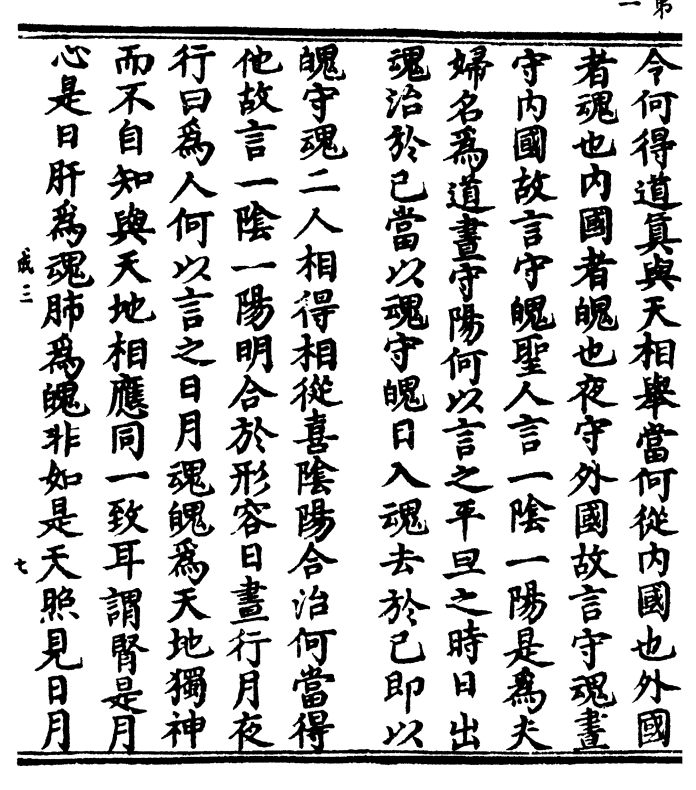 弟一
今何得道真與天相舉當何從內國也外國
者魂也內國者魄也夜守外國故言守魂晝
守內國故言守魄聖人言一陰一陽是為夫
婦名為道晝守陽何以言之平旦之時日出
魂治於己當以魂守魄日入魂去於己即以
魄守魂二人相得相從喜陰陽合治何當得
他故言一陰一陽明合於形容日晝行月夜
行曰為人何以言之日月魂魄為天地獨神
而不自知與天地相應同一致耳謂腎是月
心是日肝為魂肺為魄非如是天照見日月
咸三
七